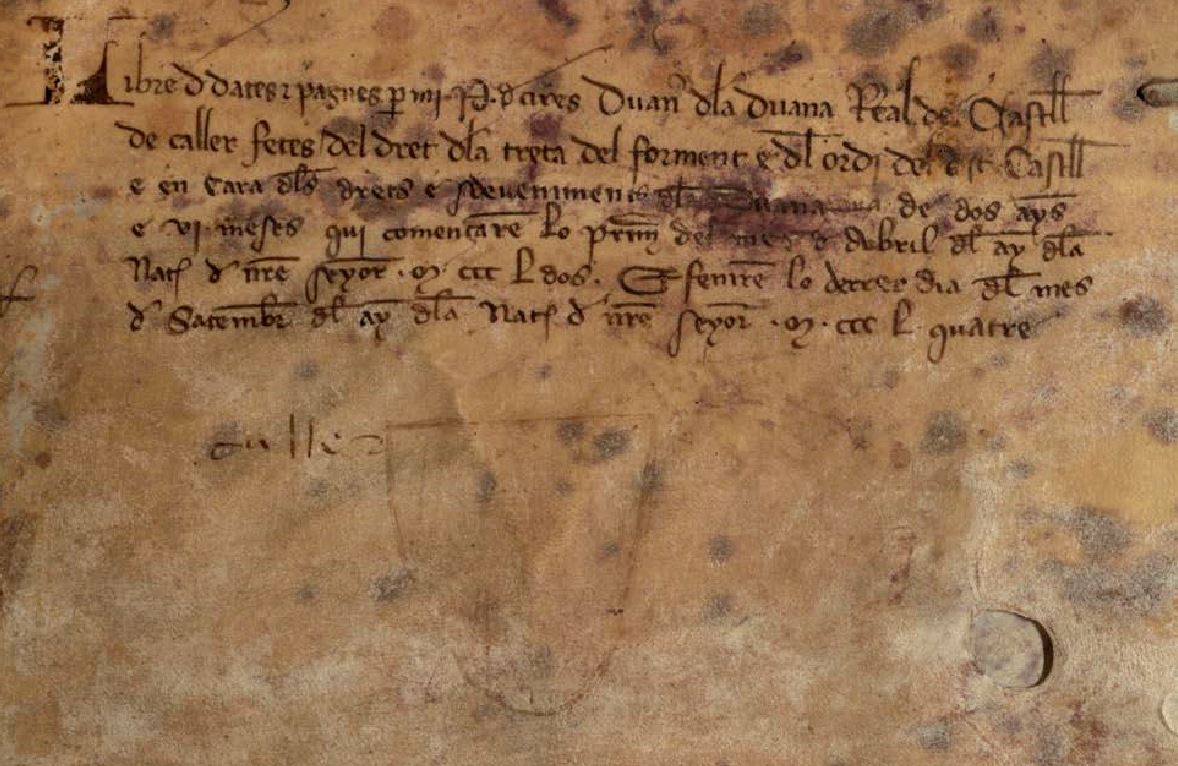 Libre d dates ⁊ pagues p mi P. d cires Duan dla Duana Real de Castll
de caller fetes del dret dla treta del forment e dl ordj del dit Castll
e en cara dls drets e sdeveniments dla Duana de dos ays
e vj meses qui comensare lo prim del mes d abril dl ay dla
Nat d nre seyor m ccc L dos. E fenire lo derrer dia dl mes
d Satembr dl ay dla Nat d nre seyor m ccc L quatre
caller